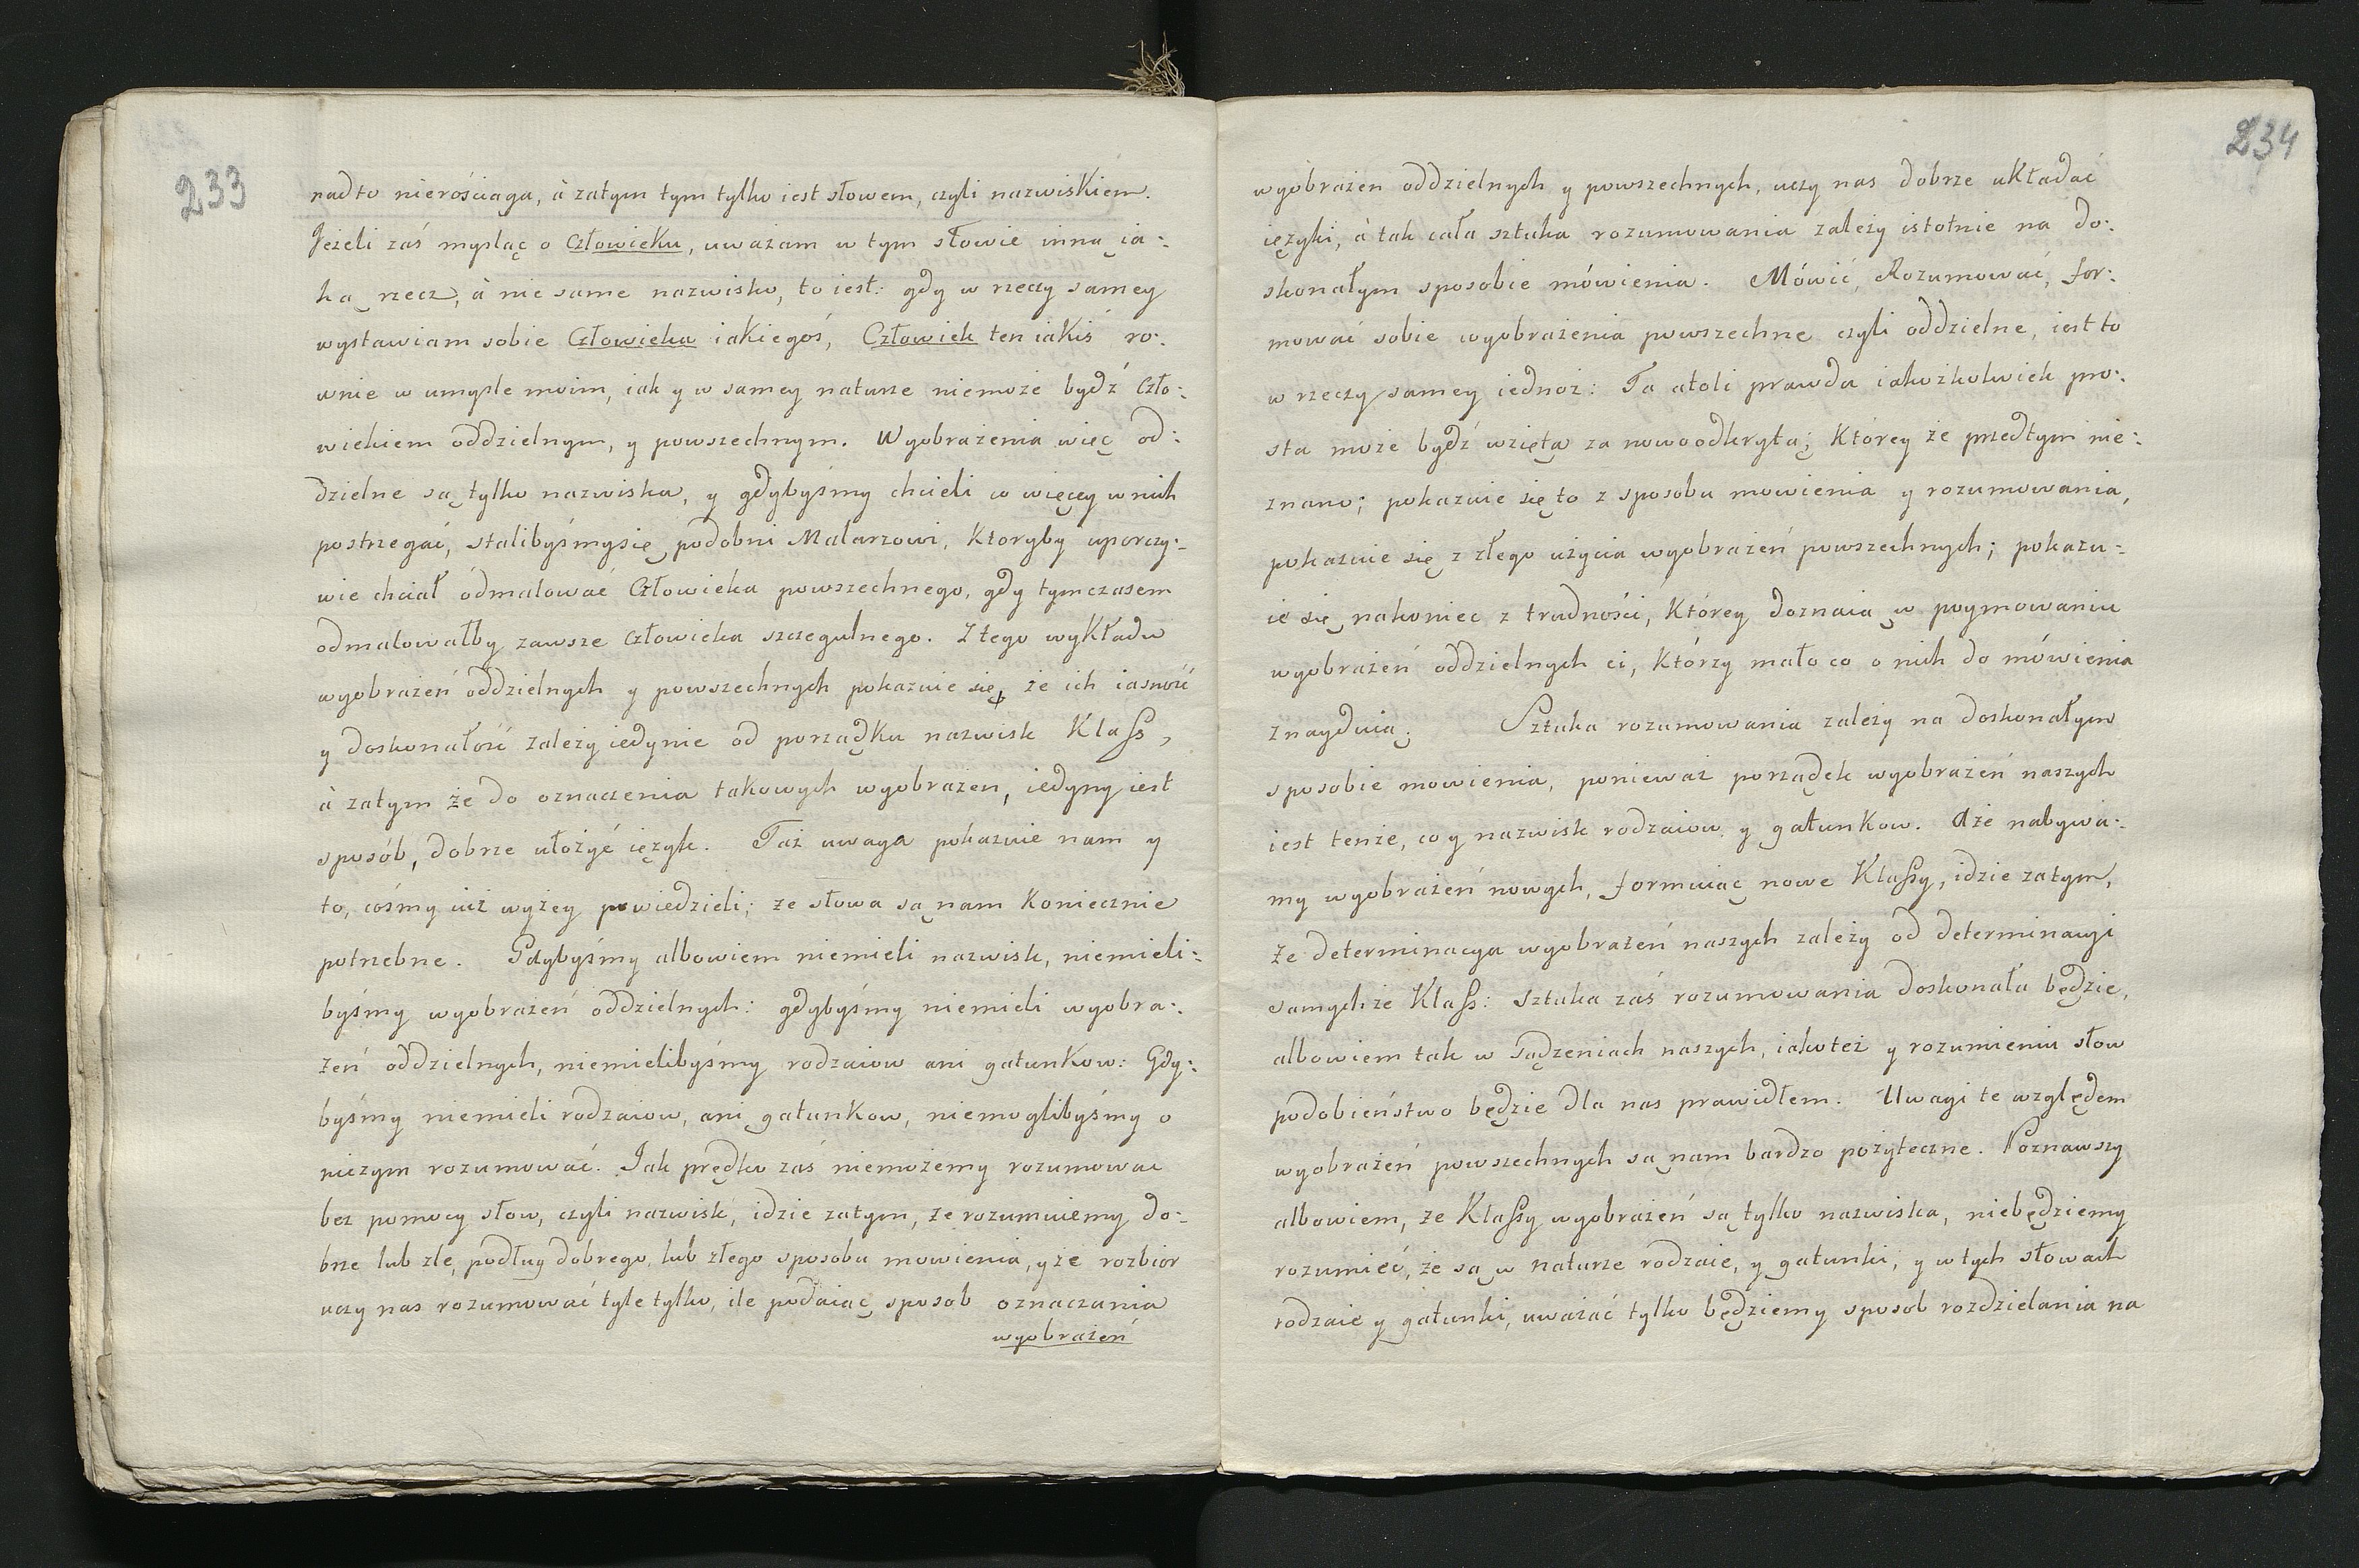 233
nadto nierościąga, à zatym tym tylko iest słowem, czyli nazwiskiem.
Jeżeli zaś mysląc o Człowieku, uważam w tym słowie inną ia:
ką rzecz, à nie same nazwisko, to iest: gdy w rzeczy samey
wystawiam sobie Człowieka iakiegoś, Człowiek ten iakiś ro:
wnie w umysle moim, iak y w samey naturze niemoże bydź Czło:
wiekiem oddzielnym, y powszechnym. Wyobrażenia więc od:
dzielne są tylko nazwiska, y gdybyśmy chcieli co więcey w nich
postrzegać, stalibyśmysię podobni Malarzowi, Ktoryby uporczy:
wie chciał ódmalować Człowieka powszechnego, gdy tymczasem
odmalowałby zawsze Człowieka szczegulnego. Z tego wykładu
wyobrażeń oddzielnych y powszechnych pokazuie się, że ich iasność
y doskonałość zależy iedynie od porządku nazwisk Klass,
à zatym że do oznaczenia takowych wyobrażen, iedyny iest
sposób, dobrze ułożyć ięzyk. Taż uwaga pokazuie nam y
to, cośmy iuż wyżey powiedzieli; że słowa są nam Koniecznie
potrzebne. Gdybyśmy albowiem niemieli nazwisk, niemieli:
byśmy wyobrażeń oddzielnych: gdybyśmy niemieli wyobra:
żeń oddzielnych, niemielibyśmy rodzaiow ani gatunkow: Gdy:
byśmy niemieli rodzaiow, ani gatunkow, niemoglibyśmy o
niczym rozumować. Jak prędko zaś niemożemy rozumowac
bez pomocy słow, czyli nazwisk, idzie zatym, że rozumuiemy do:
brze lub zle, podług dobrego, lub złego sposobu mowienia, y że rozbior
uczy nas rozumować tyle tylko, ile podaiąc sposob oznaczania
wyobrażeń
234
wyobrażen oddzielnych y powszechnych, uczy nas dobrze układać
ięzyki, à tak cała sztuka rozumowania zależy istotnie na do:
skonałym sposobie mówienia. Mówić, Rozumować, for:
mować sobie wyobrażenia powszechne czyli oddzielne, iest to
w rzeczy samey iednoż: Ta atoli prawda iakożkolwiek pro:
sta może bydź wzięta za nowoodkrytą; Którey że przedtym nie:
znano; pokazuie się to z sposobu mowienia y rozumowania,
pokazuie się z złego użycia wyobrażeń powszechnych; pokazu:
ie się nakoniec z trudności, Którey doznaią w poymowaniu
wyobrażeń oddzielnych ci, Którzy mało co o nich do mówienia
znayduią. Sztuka rozumowania zależy na doskonałym
sposobie mowienia, ponieważ porządek wyobrażeń naszych
iest tenże, co y nazwisk rodzaiow y gatunkow. Aże nabywa:
my wyobrażeń nowych, formuiąc nowe Klassy, idzie zatym,
że determinacya wyobrażeń naszych zależy od determinacyi
samychże Klass: Sztuka zaś rozumowania doskonała będzie,
albowiem tak w sądzeniach naszych, iakoteż y rozumieniu słow
podobieństwo będzie dla nas prawidłem. Uwagi te względem
wyobrażeń powszechnych są nam bardzo pożyteczne. Poznawszy
albowiem, że Klassy wyobrażeń są tylko nazwiska, niebędziemy
rozumieć, że są w naturze rodzaie, y gatunki, y w tych słowach
rodzaie y gatunki, uważać tylko będziemy sposob rozdzielania na